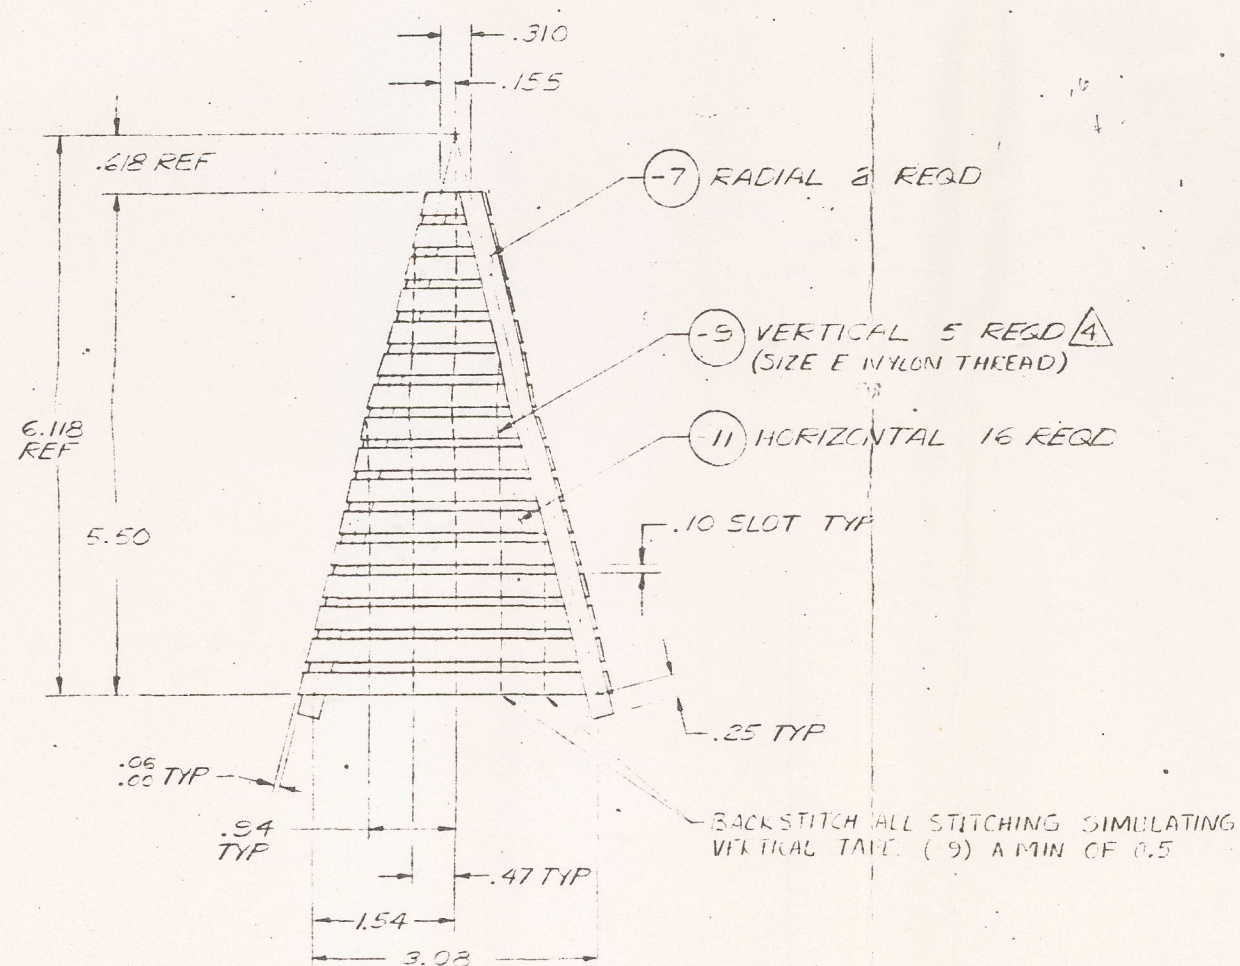 .310
.155
.618 REF
-7 RADIAL 8 REQD
-9 VERTICAL 5 REQD 4
(SIZE E NYLON THREAD)
6.118
REF
-11 HORIZONTAL 16 REQD
.10 SLOT TYP
5.50
.25 TYP
.06
.00 TYP
.94
TYP
BACKSTITCH ALL STITCHING SIMULATING
VERTICAL TAPE (-9) A MIN OF 0.5
.47 TYP
1.54
3.08